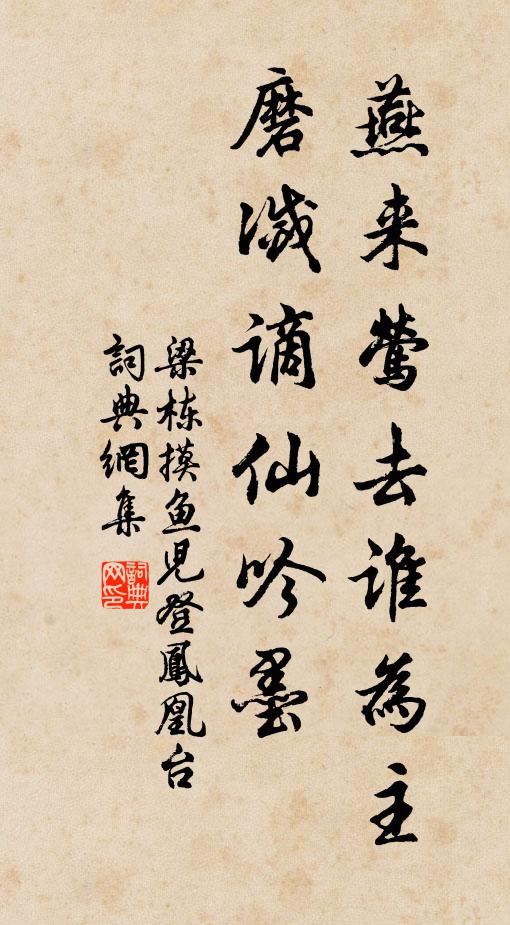 燕来鶯去誰為主
磨滅謫仙吟墨
梁栋摸鱼児登鳳凰台
詞典網集
詞典网印